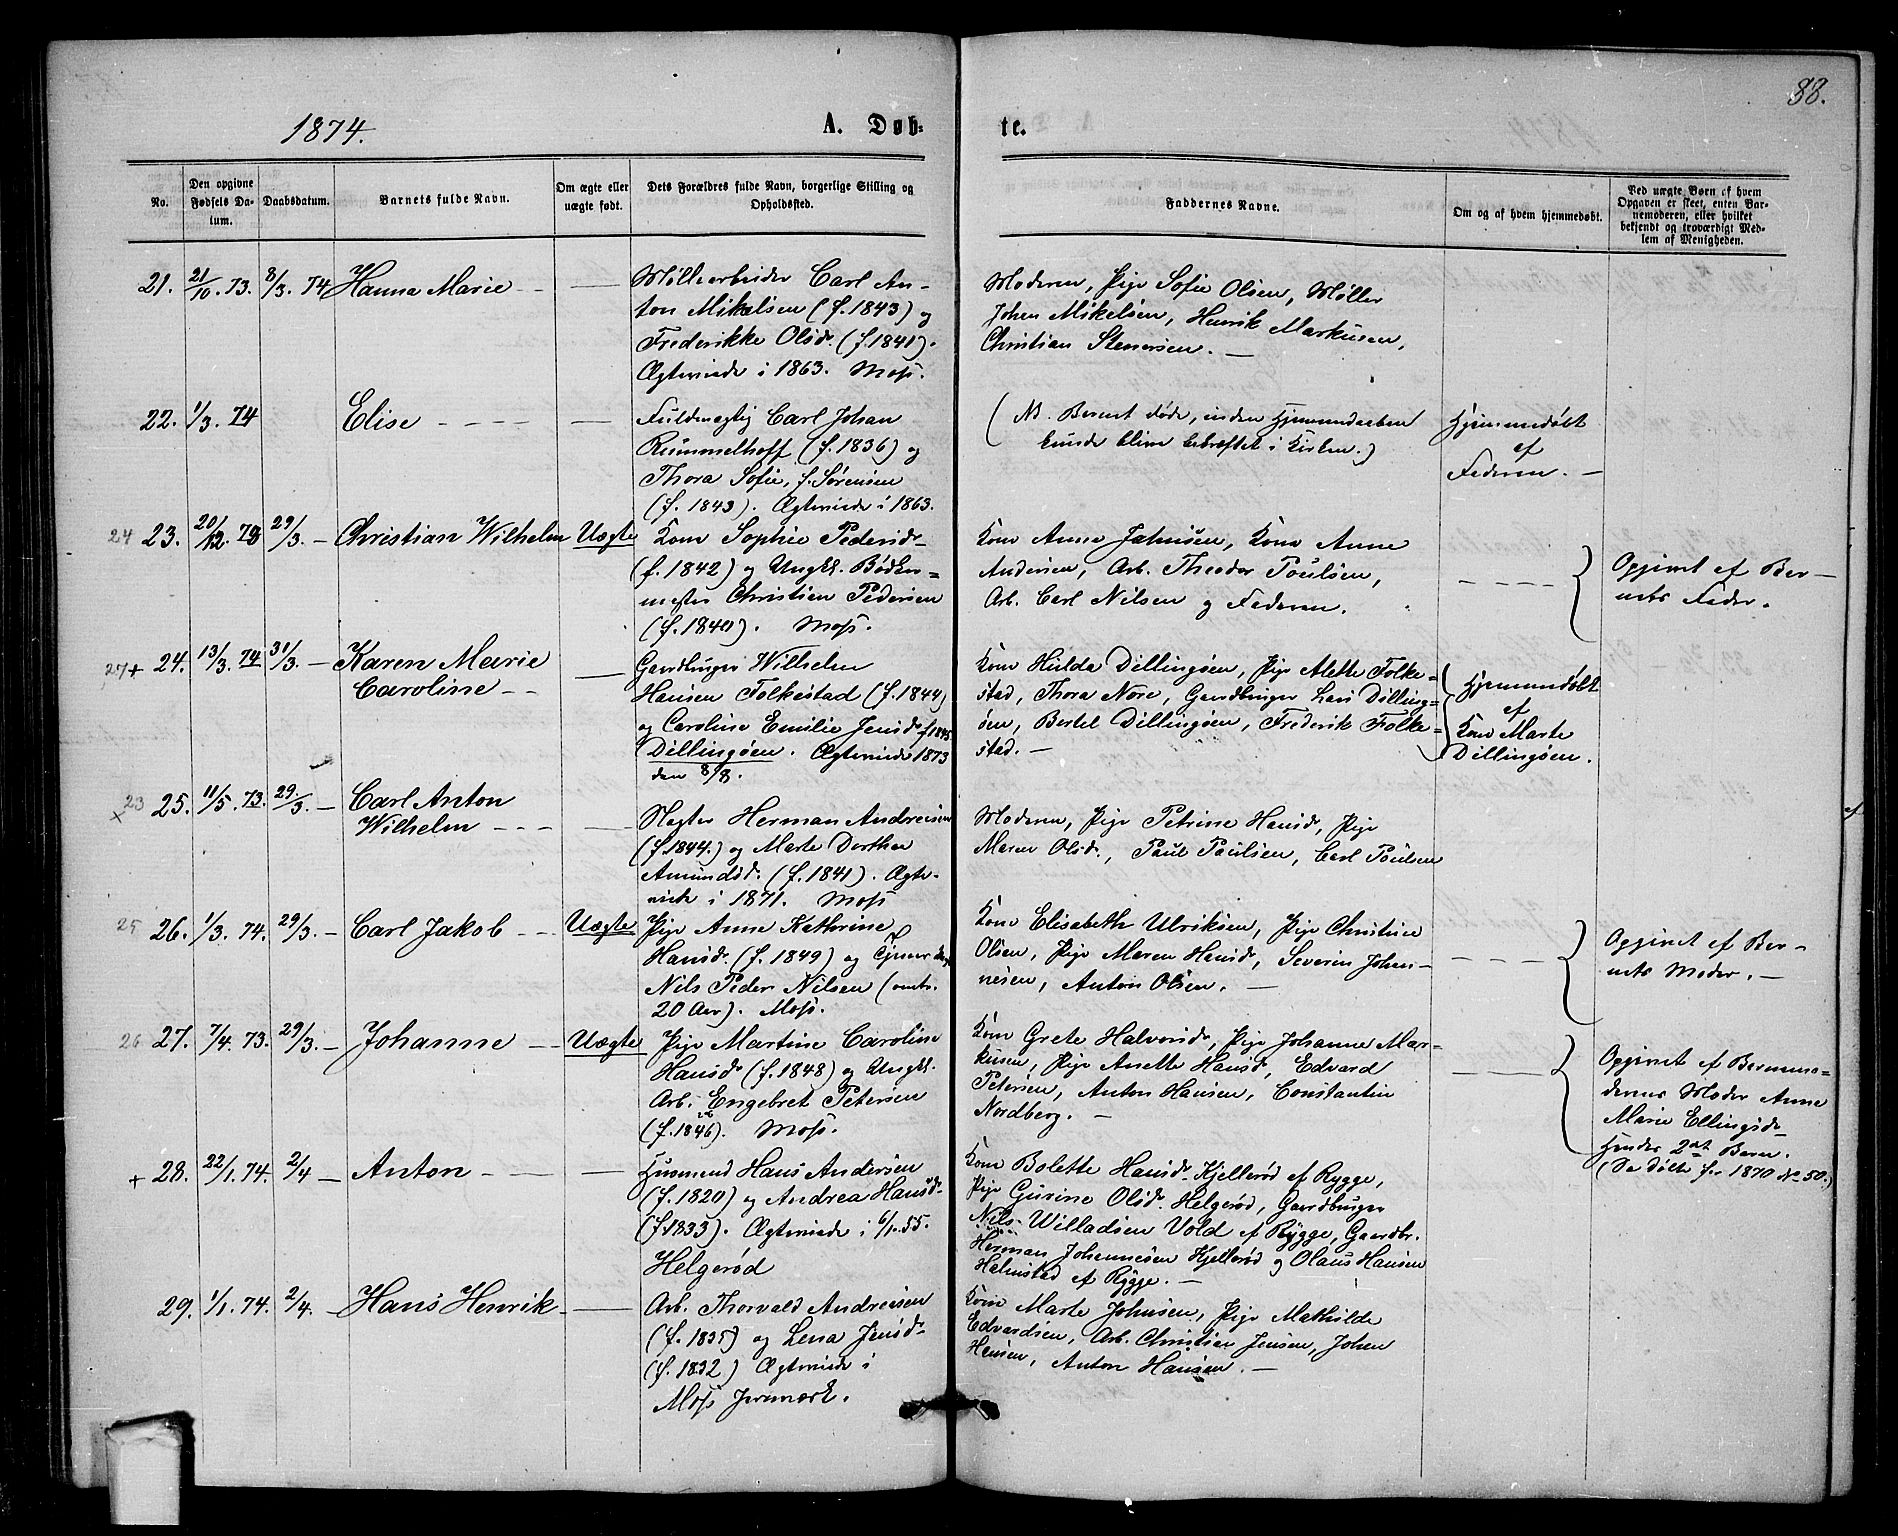 88.
1874.
A. Døb-
te.
No.
Den opgivne Fødsels Datum.
Daabsdatum.
Barnets fulde Navn.
Om ægte eller uægte født.
Dets Forældres fulde Navn, borgerlige Stilling og Opholdssted.
Faddernes Navne.
Om og af hvem hjemmedøbt.
Ved uægte Børn af hvem Opgaven er skeet, enten Barnemoderen, eller hvilket bekjendt og troværdigt Medlem af Menigheden.
21. 21/10. 73. 8/3. 74 Hanna Marie - - —
Møllearbeider Carl An-
ton Mikelsen (f. 1843) og
Frederikke Olsd. (f. 1841).
Ægteviede i 1863. Moss.
Moderen, Pige Sofie Olsen, Møller
Johan Mikelsen, Henrik Markusen,
Christian Stenersen. —
22. 1/3. 74 Elise - - - - —
Fuldmægtig Carl Johan
Rummelhoff (f. 1836) og
Thora Sofie, f. Sørensen
(f. 1843). Ægteviede i 1863.
(NB. Barnet døde, inden Hjemmedaaben
kunde blive bekræftet i Kirken.)
Hjemmedøbt
af
Faderen. —
24 23. 20/12. 73 29/3. — Christian Wilhelm Uægte
Kone Sophie Pedersd.
(f. 1842) og Ungk. Bødker-
mester Christian Pedersen
(f. 1840). Moss.
Kone Anne Johnsen, Kone Anne
Andersen, Arb. Theodor Poulsen,
Arb. Carl Nilsen og Faderen.
Opgivet af Bar-
nets Fader.
27+ 24. 13/3. 74 31/3. — Karen Marie
Caroline - - —
Gaardbruger Wilhelm
Hansen Folkestad (f. 1844)
og Caroline Emilie Jensd. f 1845
Dillingøen. Ægteviede 1873
den 8/8.
Kone Hulda Dillingøen, Pige Alette Folke-
stad, Thora Nore, Gaardbruger Lars Dilling-
øen, Bertel Dillingøen, Frederik Folke-
stad. —
Hjemmedøbt
af
Kone Marte
Dillingøen.
23 x 25. 11/5. 73. 29./3. — Carl Anton
Wilhelm - - - —
Slagter Herman Andresen
(f. 1844.) og Marte Dorthea
Amundsd. (f. 1841). Ægte-
viede i 1871. Moss
Moderen, Pige Petrine Hansd., Pige
Maren Olsd., Paul Paulsen, Carl Poulsen
25 26. 1/3. 74. 29/3. — Carl Jakob - - Uægte
Pige Anne Kathrine
Hansd. (f. 1849) og
Nils Peder Nilsen (omtr.
20 Aar). Moss.
Kone Elisabeth Ulriksen, Pige Christine
Olsen, Pige Maren Hansd., Severin Johan-
nesen, Anton Olsen. —
Opgivet af Bar-
nets Moder. —
26 27. 7/4. 73. 29/3. — Johanne — Uægte
Pige Martine Caroline
Hansd. (f. 1848) og Ungk.
Arb. Engebret Petersen
(f. 1846). Moss.
Kone Grete Halvorsd., Pige Johanne Mar-
kusen, Pige Anette Hansd., Edvard
Petersen, Anton Hansen, Constantin
Nordberg. —
Opgivet af Barnemo-
derens Moder Anne
Marie Ellingsd.
Hendes 2det Barn.
(Se døbte for 1870 No. 50.)
+ 28. 22/1. 74. 2/4 — Anton - - - —
Husmand Hans Andersen
(f. 1820) og Andrea Hansd.
(f. 1833). Ægteviede i 6/1. 55.
Helgerød
Kone Bolette Hansd. Kjellerød af Rygge,
Pige Gurine Olsd. Helgerød, Gaardbruger
Nils Willadsen Vold af Rygge, Gaardbr.
Herman Johannesen Kjellerød og Olaus Hansen
Halmstad af Rygge. —
29. 1/1. 74. 2/4. — Hans Henrik — —
Arb. Thorvald Andresen
(f. 1835) og Lena Jensd.
(f. 1832) Ægteviede i
Moss Jernværk.
Kone Marte Johnsen, Pige Mathilde
Edvardsen, Arb. Christian Jensen, Johan
Hansen, Anton Hansen. —